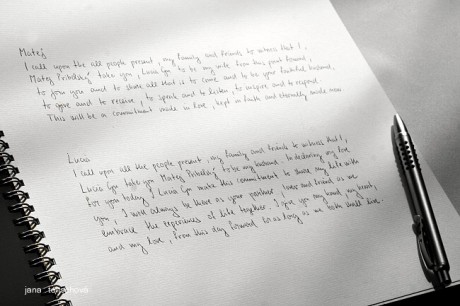 Matej
I call upon the all people present, my family and friends to witness that I,
Matej take you, Lucia to be my wife from this point forward,
to join you and to share all that is to come and to be your faithful husband,
to give and to receive, to speak and to listen, to inspire and to respond.
This will be a commitment made in love, kept in faith and eternally made new
Lucia
I call upon all the people present, my family and friends to witness that I,
Lucia take you Matej to be my husband. In declaring my love
for you today, I Lucia make this commitment to share my life with
you. I will always be there as your partner, love and friend as we
embrace the experiences of life together. I give you my hand, my heart,
and my love, from this day forward for as long as we both shall live.
jana